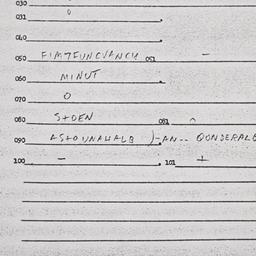 030
031 0
040
050 FIMTFUNCVANCY 051 -
060 MINUT
070 0
080 STOEN 081 0
090 ASTOUNAHALB )-AN-- QONDERALE
100 - 101 +